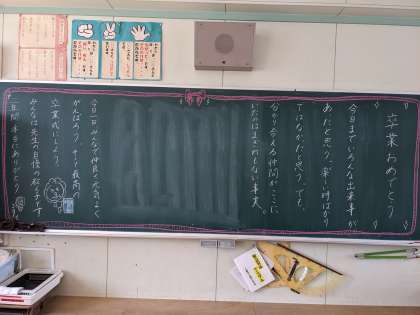 卒業おめでとう
今日までいろんな出来事が
あったと思う。楽しい時ばかり
ではなかったと思う。でも、
分かり合える仲間がここに
いたのはまぎれもない事実。
今日一日みんなで仲良く元気よく
がんばろう。そして最高の
卒業式にしよう。
みんなは先生の自慢の教え子です。
一年間本当にありがとう。